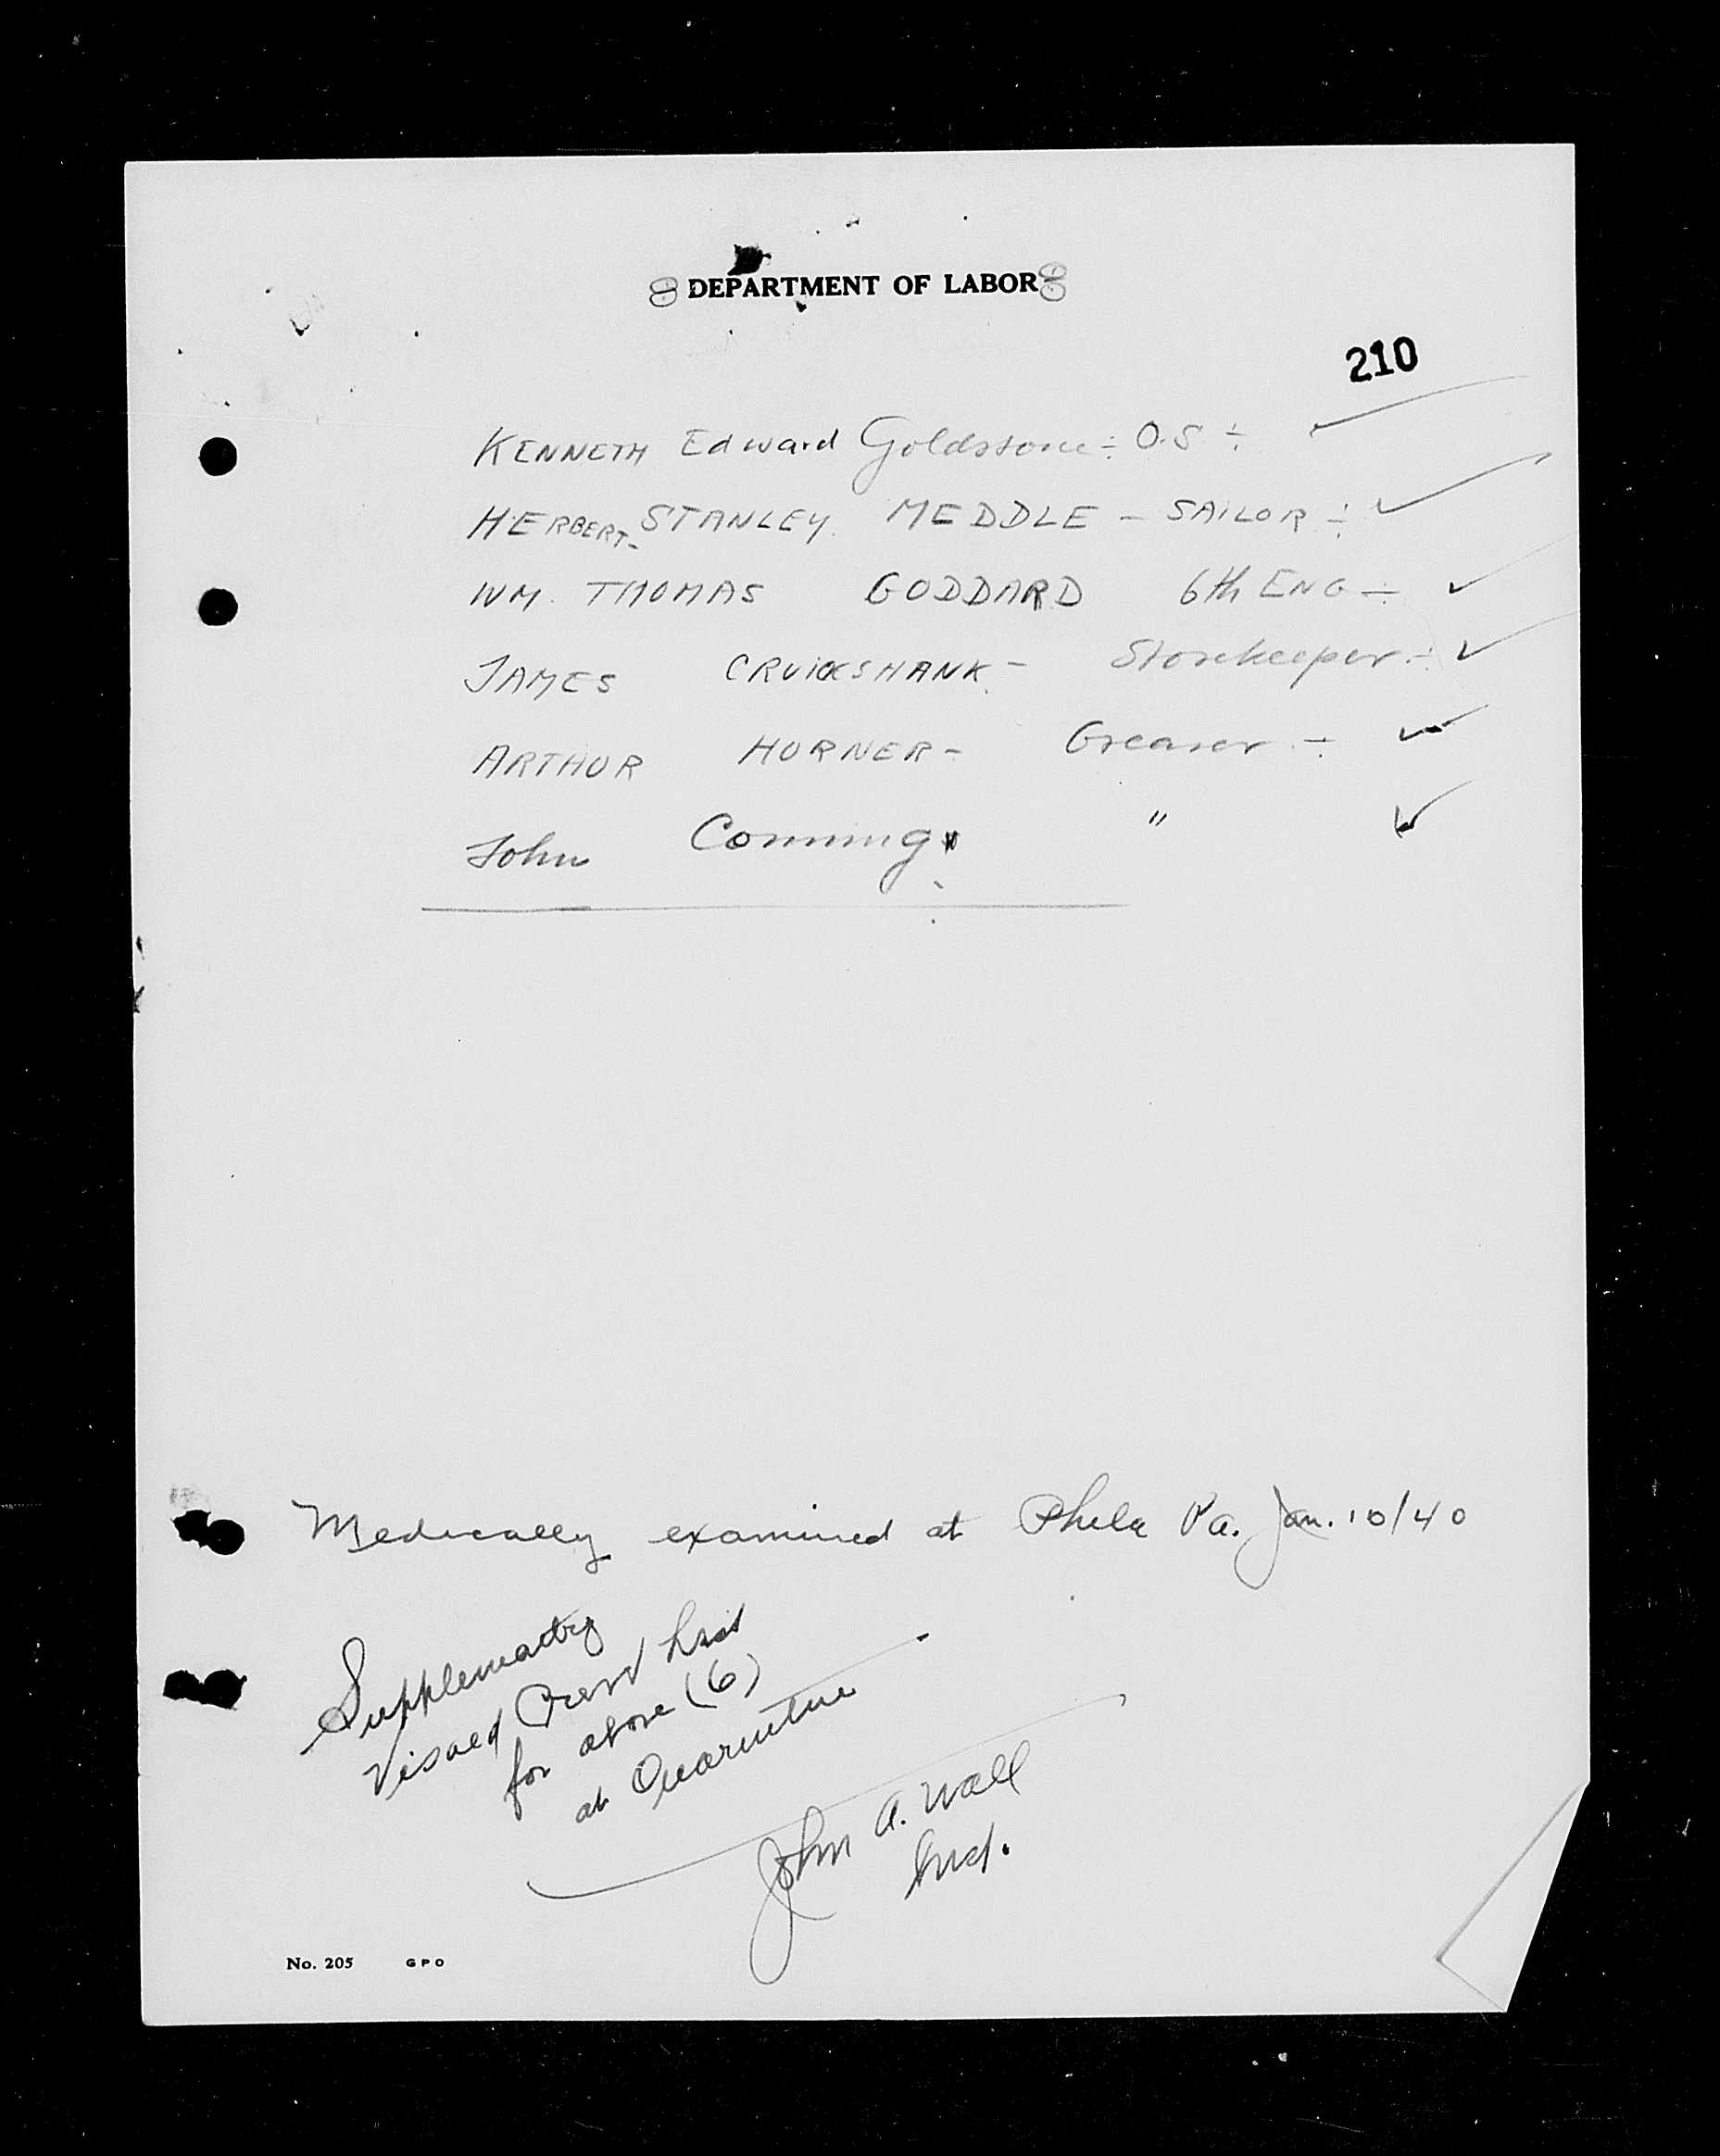 DEPARTMENT OF LABOR
210
KENNETH Edward Goldstone ÷ O.S ÷
HERBERT- STANLEY. MEDDLE - SAILOR ÷ ✓
WM. THOMAS GODDARD 6th ENG ÷ ✓
JAMES CRUICKSHANK - Storekeeper ÷ ✓
ARTHUR HORNER - Greaser ÷ ✓
John Conning " ✓
Medically examined at Phila Pa. Jan. 10/40
Supplematry
Visaed Crew List
for above (6)
at Quarintine
John A. Wall
Insd.
No. 205 GPO